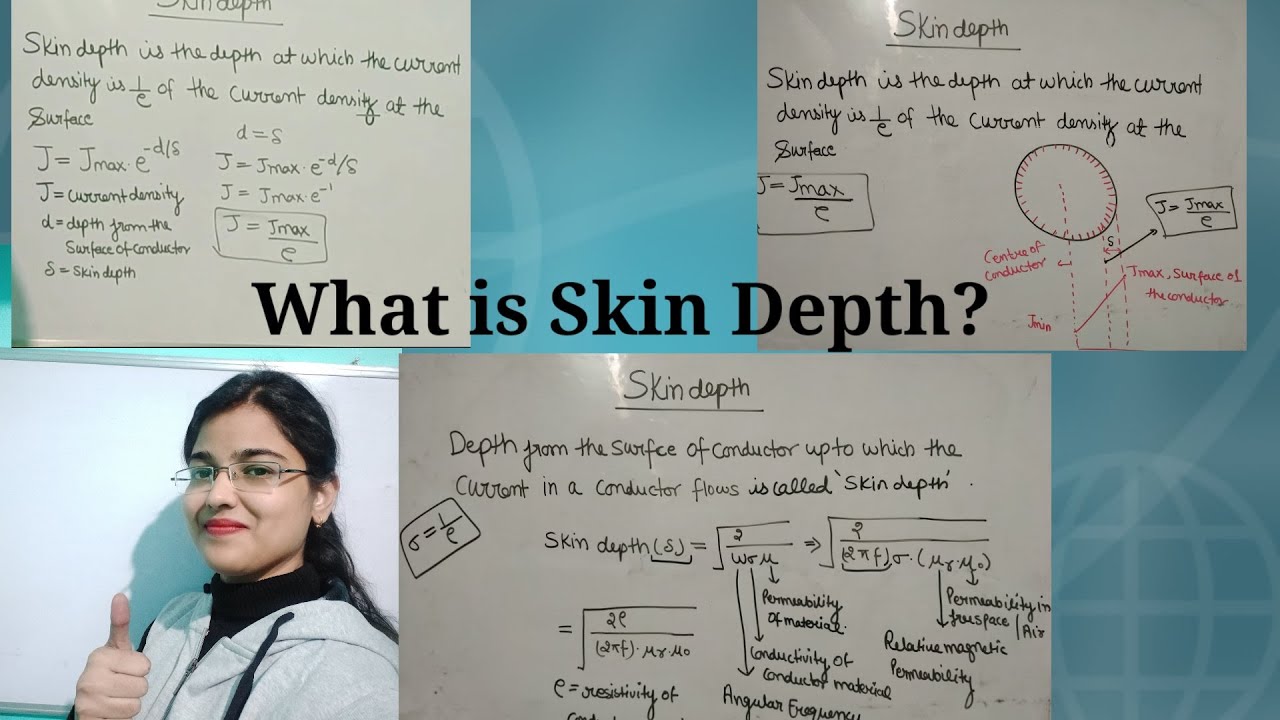 Skin depth
Skin depth is the depth at which the current
density is 1/e of the current density at the
Surface
J = Jmax. e^-d/δ
J = current density
d = depth from the
Surface of conductor
δ = skin depth
d = δ
J = Jmax. e^-d/δ
J = Jmax. e^-1
J = Jmax/e
Skin depth
Skin depth is the depth at which the current
density is 1/e of the current density at the
Surface
J = Jmax/e
δ
J = Jmax/e
Centre of
conductor
Jmax, Surface of
the conductor
Jmin
What is Skin Depth?
Skin depth
Depth from the surfce of conductor upto which the
Current in a conductor flows is called 'Skin depth'.
σ = 1/ρ
Skin depth (δ) = √(2/ωσμ) ⇒ √(2/(2πf)σ.(μr.μ0))
Permeability
Of material.
Conductivity of
Conductor material
Angular Frequency
Permeability in
freespace / Air
Relative magnetic
Permeability
= √(2ρ/(2πf).μr.μ0)
ρ = resistivity of